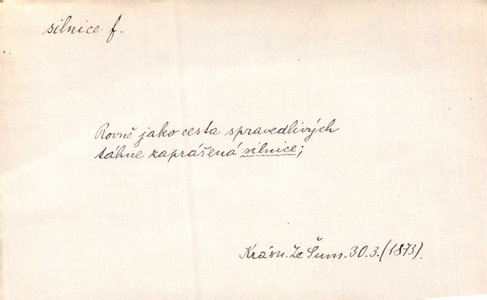 silnice f.
Rovně jako cesta spravedlivých
táhne zaprášená silnice;
Krásn. Ze Šum. 30. 3. (1873).